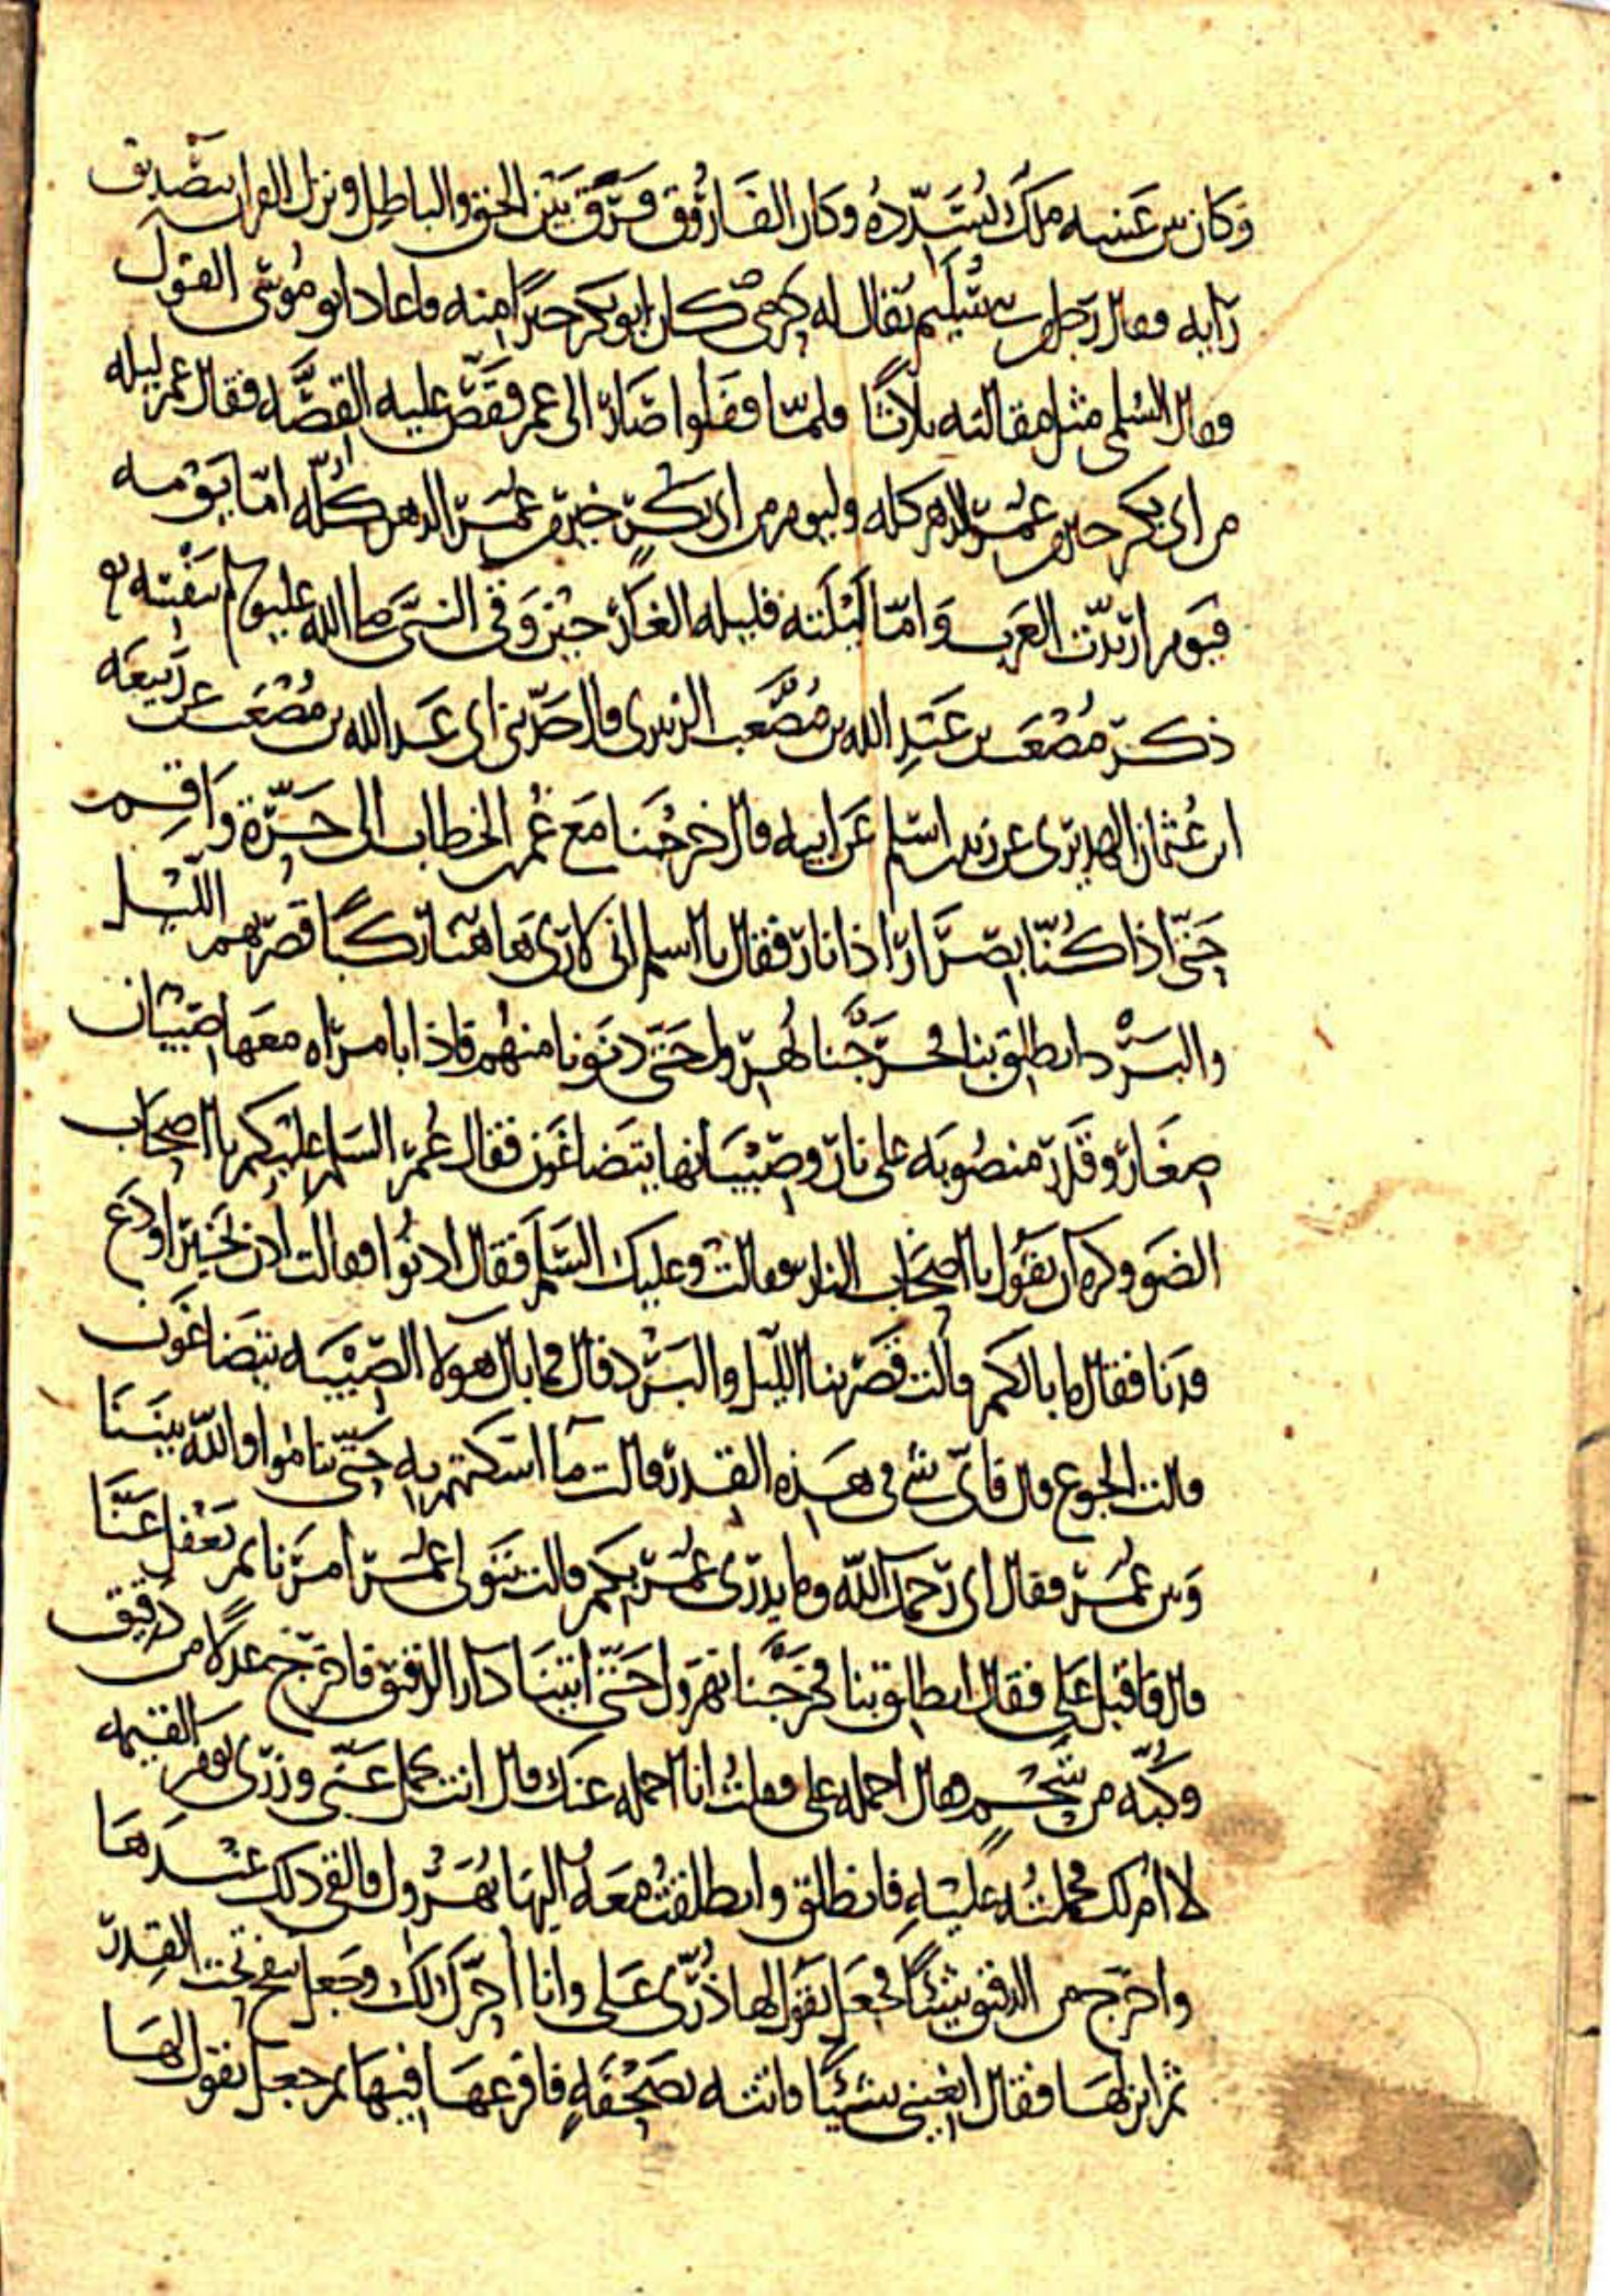 وكان بين عينيه ملك يسدده وكان الفاروق فرق بين الحق والباطل ونزل القران بتصديق
رايه وقال رجل من سليم يقال له كان ابو بكر خيرا منه فاعاد ابو موسى القول
وقال السلمى مثل مقالته ثلاثا فلما قفلوا صار الى عمر فقص عليه القصه فقال عمر ليله
من ابى بكر خير من عمر الدهر كله وليوم من ابى بكر خير من عمر الدهر كله اما يومه
فيوم ارتدت العرب واما ليلته فليله الغار حين وقى النبى صلى الله عليه وسلم بنفسه
ذكر مصعب بن عبد الله بن مصعب الزبيرى قال حدثنى ابى عبد الله بن مصعب عن ربيعه
ابن عثمان الهديرى عن زيد بن اسلم عن ابيه قال خرجنا مع عمر بن الخطاب الى حرة واقم
حتى اذا كنا بصرار اذا نار فقال يا اسلم انى لارى هاهنا ركبا قصر بهم الليل
والبرد انطلق بنا فخرجنا نهرول حتى دنونا منهم فاذا بامراه معها صبيان
صغار وقدر منصوبه على نار وصبيانها يتضاغون فقال عمر السلم عليكم يا اصحاب
الضوو وكره ان يقول يا اصحاب النار فقالت وعليك السلم فقال ادنوا فقالت ادن بخير او دع
فدنا فقال ما بالكم قالت قصر بنا الليل والبرد قال فما بال هولا الصبيه يتضاغون
قالت الجوع قال فاى شى فى هذه القدر قالت ما اسكتهم به حتى ناموا والله بيننا
وبين عمر فقال اى رحمك الله وما يدرى عمر بكم قالت يتولى عمر امرنا ثم يغفل عنا
قال فاقبل على فقال انطلق بنا فخرجنا نهرول حتى اتينا دار الدقيق فاخرج عدلا من دقيق
وكبه من شحم فقال احمله على فقلت انا احمله عنك قال انت تحمل عنى وزرى يوم القيمه
لا ام لك فحملته عليه فانطلق وانطلقت معه اليها نهرول فالقى ذلك عندها
واخرج من الدقيق شيئا فجعل يقول لها ذرى على وانا احرك لك وجعل ينفخ تحت القدر
ثم انزلها فقال ابغينى شيئا فاتته بصحفه فافرغها فيها ثم جعل يقول لها